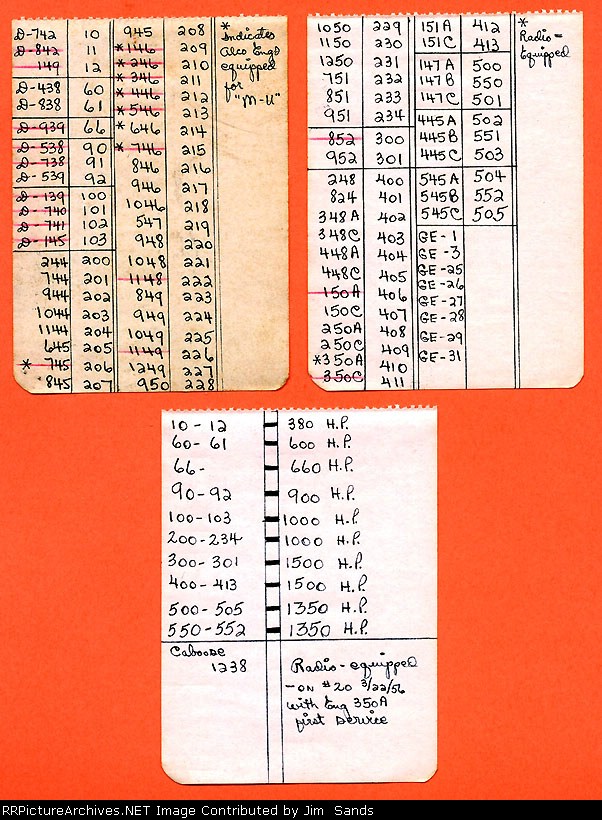 D-742 10 945 208 *
D-842 11 *146 209 Indicates
149 12 *246 210 Alco Engs
*346 211 equipped
D-438 60 *446 212 for
D-838 61 *546 213 "M-U"
D-939 66 *646 214
D-538 90 *746 215
D-738 91 846 216
D-539 92 946 217
D-139 100 1046 218
D-740 101 547 219
D-741 102 948 220
D-145 103 1048 221
244 200 1148 222
744 201 849 223
944 202 949 224
1044 203 1049 225
1144 204 1149 226
645 205 1249 227
*745 206 950 228
845 207
1050 229 151A 412 *
1150 230 151C 413 Radio=
1250 231 147A 500 Equipped
751 232 147B 550
851 233 147C 501
951 234 445A 502
852 300 445B 551
952 301 445C 503
248 400 545A 504
824 401 545B 552
348A 402 545C 505
348C 403 GE-1
448A 404 GE-3
448C 405 GE-25
150A 406 GE-26
150C 407 GE-27
250A 408 GE-28
250C 409 GE-29
*350A 410 GE-31
350C 411
10-12 380 H.P.
60-61 600 H.P.
66- 660 H.P.
90-92 900 H.P.
100-103 1000 H.P.
200-234 1000 H.P.
300-301 1500 H.P.
400-413 1500 H.P.
500-505 1350 H.P.
550-552 1350 H.P.
Caboose
1238
Radio-equipped
-ON #20 3/22/56
with Eng 350A
first service
RRPictureArchives.NET Image Contributed by Jim Sands